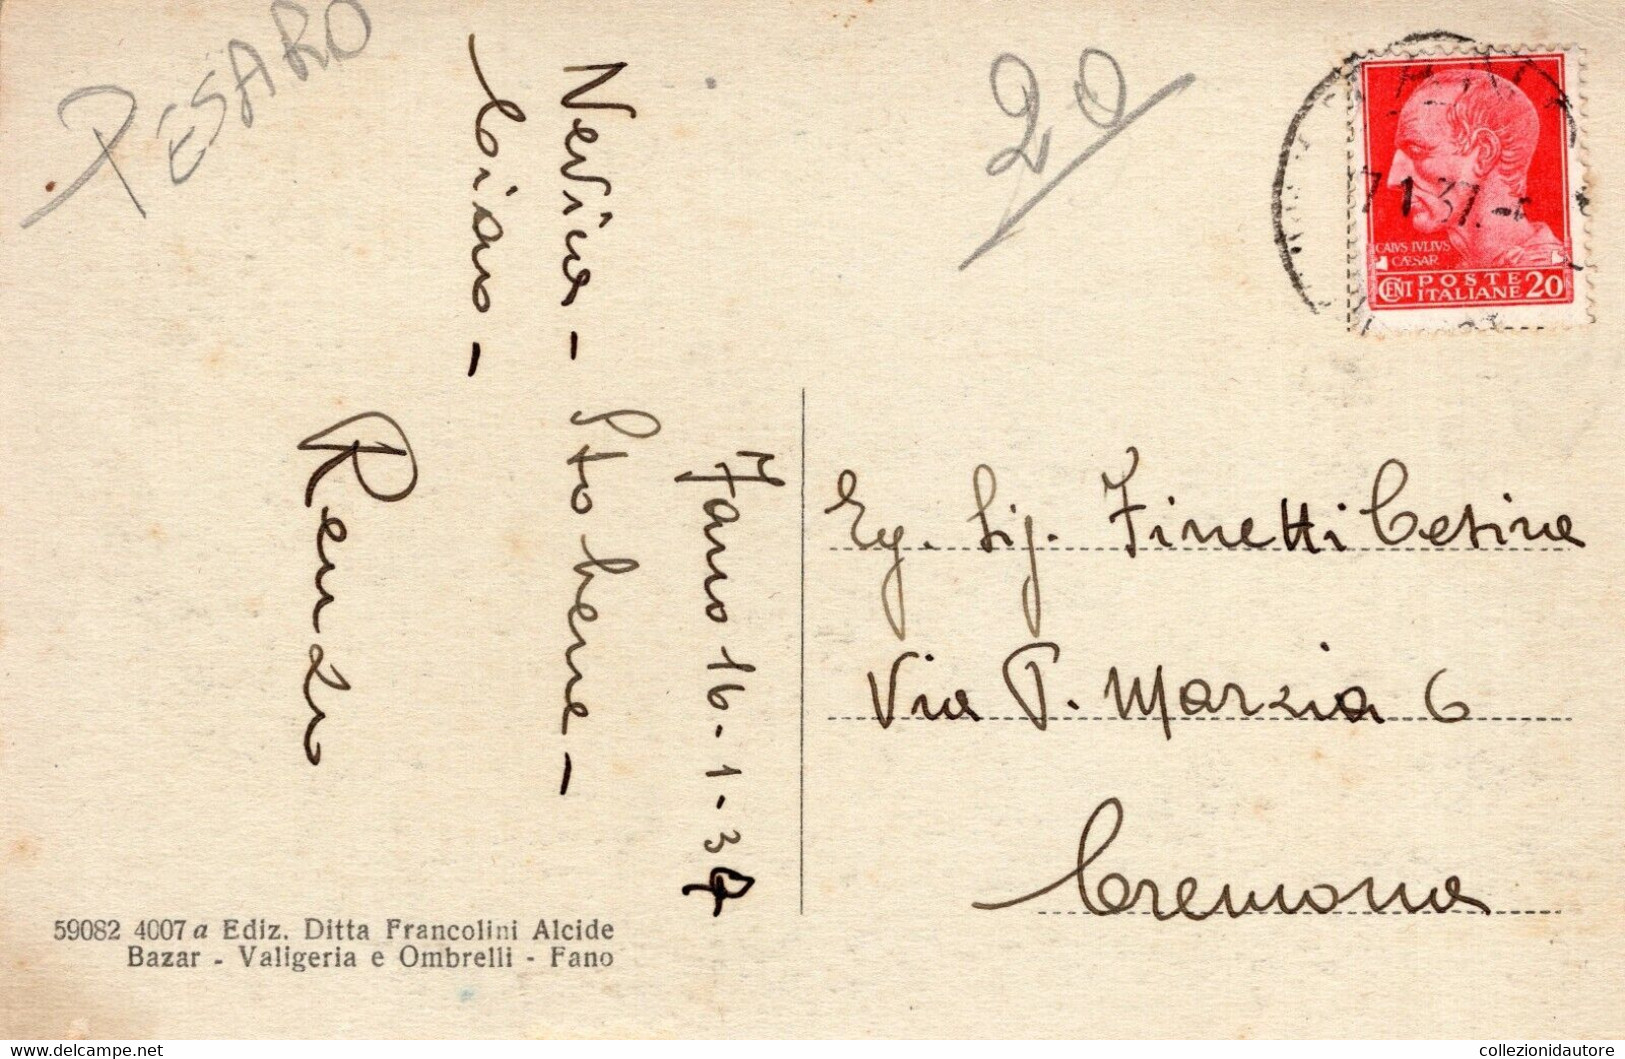 PESARO
20
Fano 16-1-37
Nevica - Sto bene -
Ciao -
Renzo
CAIVS IVLIVS
CÆSAR
CENT POSTE
ITALIANE 20
7 1 37
Eg. Sig. Finetti Cesira
Via P. Marzia 6
Cremona
59082 4007 a Ediz. Ditta Francolini Alcide
Bazar - Valigeria e Ombrelli - Fano
collezionidautore